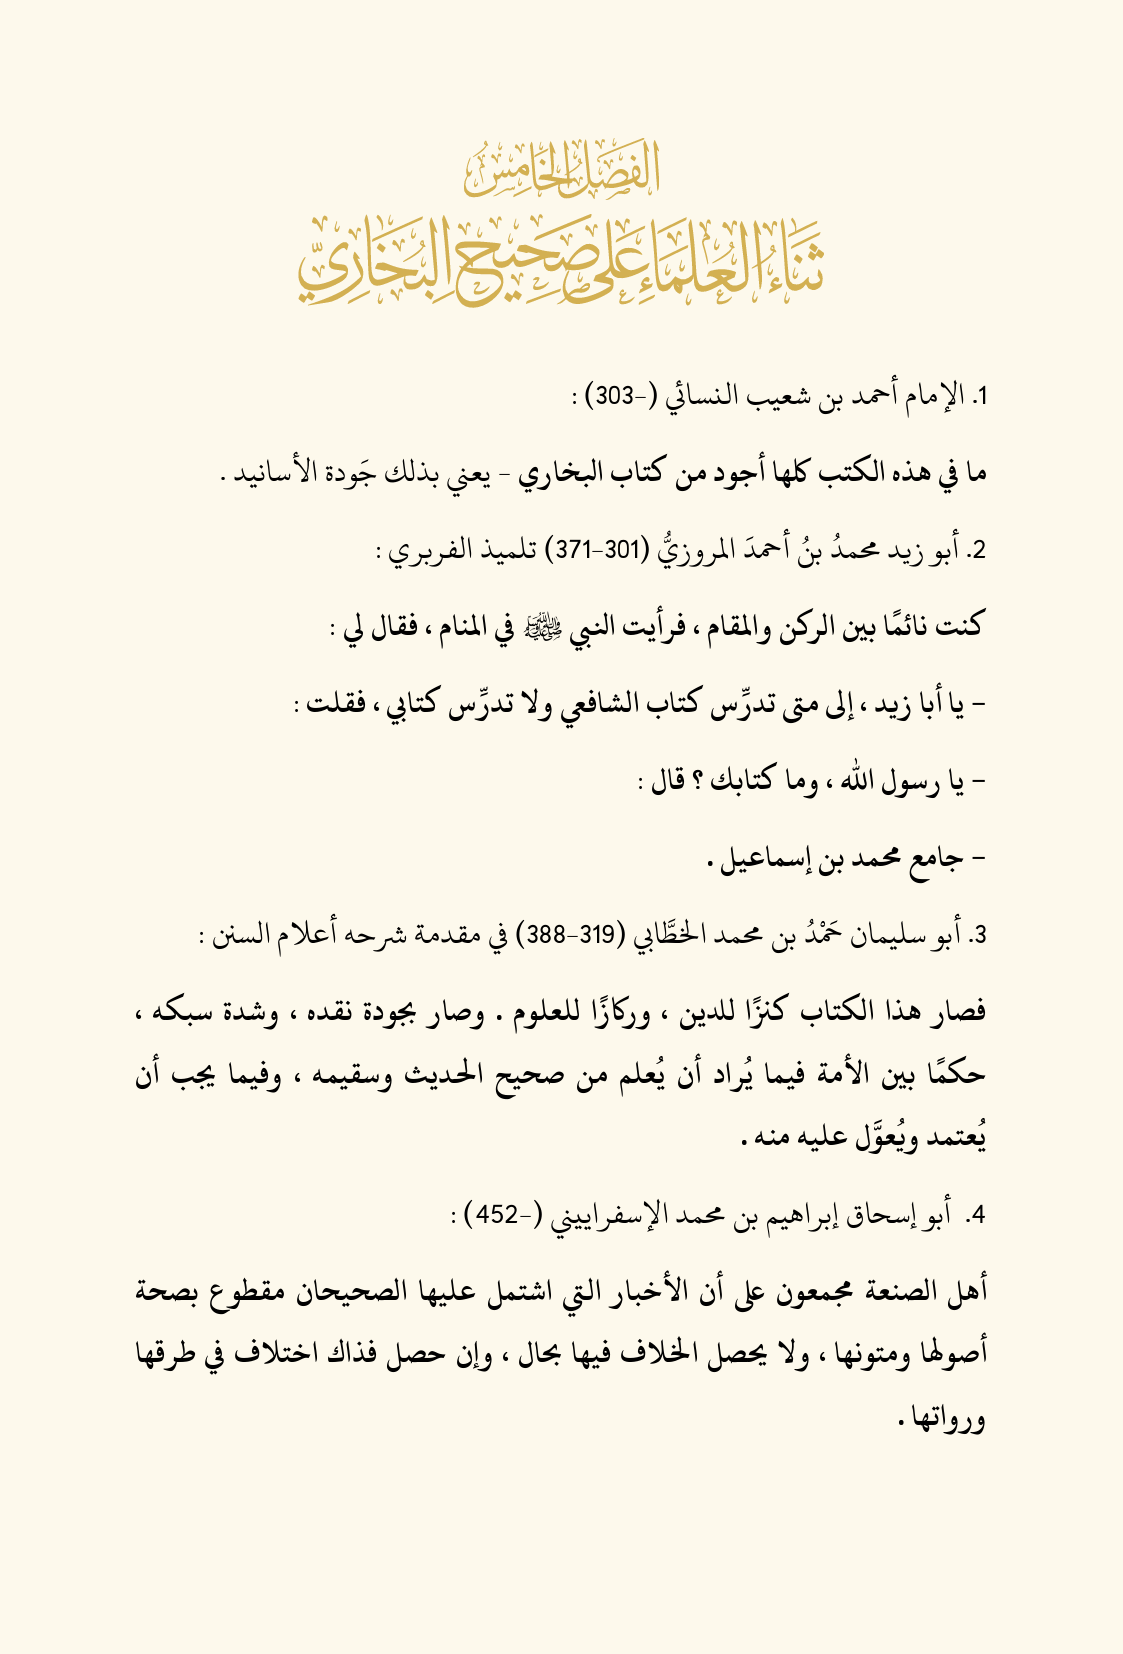 الفَصْلُ الخَامِسُ
ثَنَاءُ العُلَمَاءِ عَلَى صَحِيحِ البُخَارِيِّ
1. الإمام أحمد بن شعيب النسائي (-303) :
ما في هذه الكتب كلها أجود من كتاب البخاري - يعني بذلك جَودة الأسانيد .
2. أبو زيد محمدُ بنُ أحمدَ المروزيُّ (301-371) تلميذ الفربري :
كنت نائمًا بين الركن والمقام ، فرأيت النبي ﷺ في المنام ، فقال لي :
- يا أبا زيد ، إلى متى تدرِّس كتاب الشافعي ولا تدرِّس كتابي ، فقلت :
- يا رسول الله ، وما كتابك ؟ قال :
- جامع محمد بن إسماعيل .
3. أبو سليمان حَمْدُ بن محمد الخطَّابي (319-388) في مقدمة شرحه أعلام السنن :
فصار هذا الكتاب كنزًا للدين ، وركازًا للعلوم . وصار بجودة نقده ، وشدة سبكه ،
حكمًا بين الأمة فيما يُراد أن يُعلم من صحيح الحديث وسقيمه ، وفيما يجب أن
يُعتمد ويُعوَّل عليه منه .
4. أبو إسحاق إبراهيم بن محمد الإسفراييني (-452) :
أهل الصنعة مجمعون على أن الأخبار التي اشتمل عليها الصحيحان مقطوع بصحة
أصولها ومتونها ، ولا يحصل الخلاف فيها بحال ، وإن حصل فذاك اختلاف في طرقها
ورواتها .